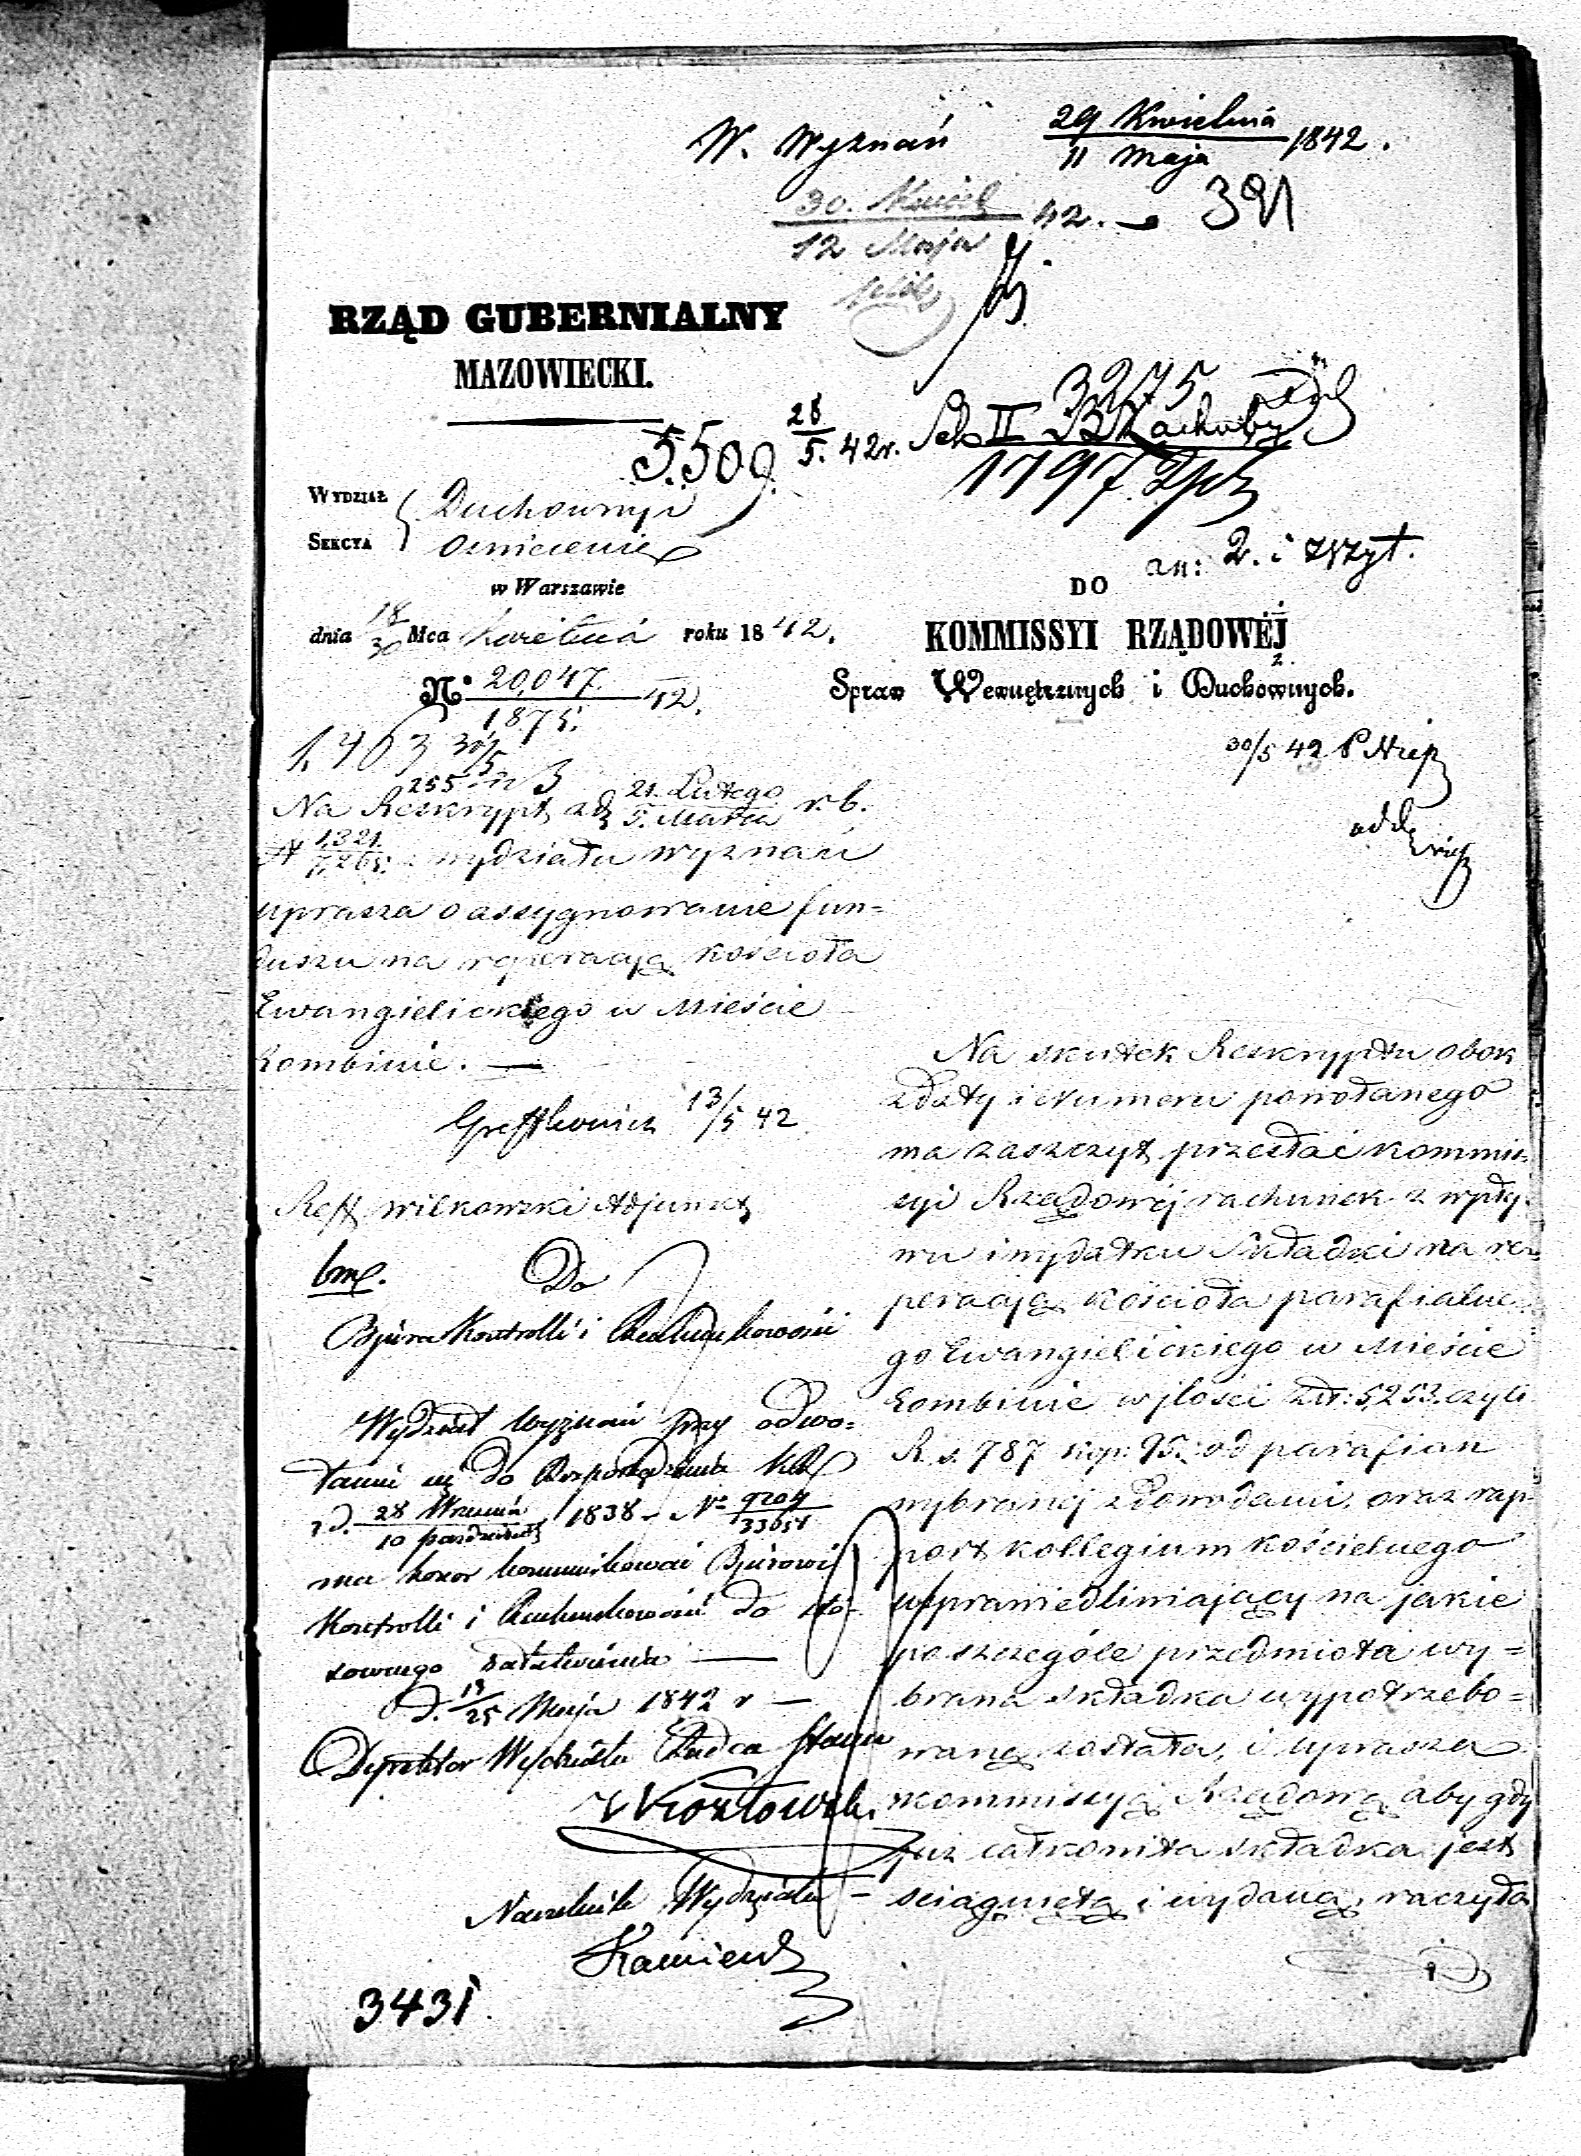 W. Wyznań 29 Kwietnia / 11 Maja 1842.
30. Kwiet / 12 Maja 42. 321
RZĄD GUBERNIALNY
MAZOWIECKI.
3275
5509. 28/5. 42 r. Sek II
1797
WYDZIAŁ Duchowny
SEKCYA
w Warszawie
an: 2. i zszyt.
DO
dnia 18/30 Mca Kwietnia roku 1842.
KOMMISSYI RZĄDOWÉJ
Spraw Wewnętrznych i Duchownych.
No. 20,047. / 1875. 42.
1,463 30/5
30/5 42
255
Na Reskrypt z d 21. Lutego / 5. Marca r. b.
N 1321. / 7,265. z wydziału wyznań
uprasza o assygnowanie fun=
duszu na reperacyą kościoła
Ewangielickiego w Mieście
Łombinie. —
13/5 42
Reff Wilkowski Adjunkt
Do
Bjóra Kontrolli i Rachunkowości
Wydział Wyznań przy odwo=
łaniu się do Rozporządzenia KR
z d. 28 Września / 10 Października 1838 - No 9204 / 33054
ma honor kommunikować Bjórowi
Kontrolli i Rachunkowości do sto-
sownego załatwienia —
d. 13/25 Maja 1842 r —
Dyrektor Wydziału Radca Stanu
Kozłowski
Naczelnik Wydziału –
3431.
Na skutek Reskryptu obok
z daty i Numeru powołanego
ma zaszczyt przesłać Kommis=
syi Rządowéj rachunek z wpły-
wu i wydatku Składki na re-
peracyę kościoła parafialne-
go Ewangielickiego w Mieście
Łombinie w jlości złt: 5,253. czyli
R. s. 787 kop. 95. od parafian
wybranéj z dowodami, oraz rap-
port kollegium kościelnego
usprawiedliwiający na jakie
poszczególe przedmiota wy=
brana składka wypotrzebo=
waną została, i uprasza
Kommissyą Rządową aby gdy
już całkowita składka jest
ściągniętą i wydaną, raczyła